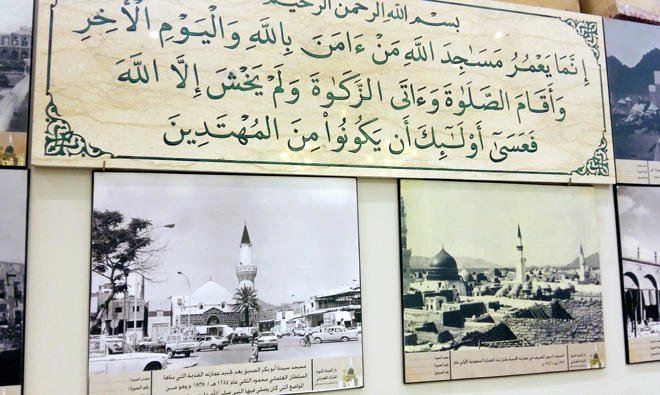 بسم الله الرحمن الرحيم
إِنَّمَا يَعْمُرُ مَسَاجِدَ اللَّهِ مَنْ ءَامَنَ بِاللَّهِ وَالْيَوْمِ الْآخِرِ
وَأَقَامَ الصَّلَاةَ وَءَاتَى الزَّكَوٰةَ وَلَمْ يَخْشَ إِلَّا اللَّهَ
فَعَسَىٰ أُوْلَٰئِكَ أَن يَكُونُوا مِنَ الْمُهْتَدِينَ
مسجد سيدنا أبو بكر الصديق بعد تجديد عمارته القديمة التي بناها
السلطان العثماني محمود الثاني عام ١٢٥٤ هـ / ١٨٣٨ م وهو من
المواضع التي كان يصلي فيها النبي صلى الله
المسجد النبوي الشريف في عمارته القديمة وقبل بدء العمارة السعودية الأولى عام